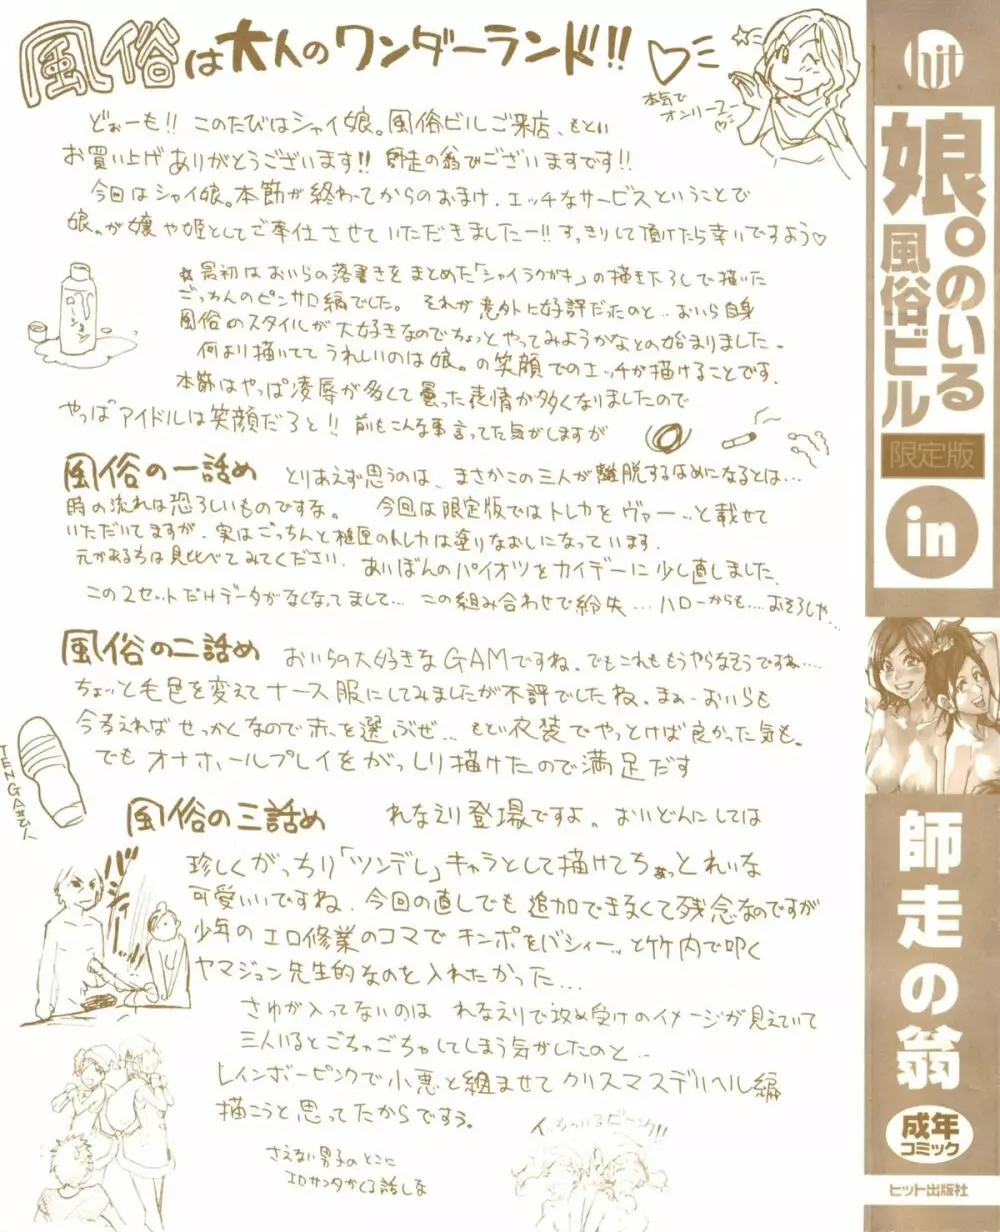 風俗は大人のワンダーランド!!
本気で
オンリーユー
どぉーも!! このたびはシャイ娘。風俗ビルご来店、もとい
お買い上げありがとうございます!! 師走の翁でございますです!!
今回はシャイ娘。本節が終わってからのおまけ、エッチなサービスということで
娘。が嬢や姫としてご奉仕させていただきましたー!! すっきりして頂けたら幸いですよう♡
ローション
最初はおいらの落書きをまとめた「シャイラクガキ」の描き下ろしで描いた
ごっちんのピンサロ編でした。それが意外に好評だったのと…おいら自身
風俗のスタイルが大好きなのでちょっとやってみようかなとの始まりました。
何より描いててうれしいのは娘。の笑顔でのエッチが描けることです。
本節はやっぱ凌辱が多くて曇った表情が多くなりましたので
やっぱアイドルは笑顔だろと!! 前もこんな事言ってた気がしますが
風俗の一話め とりあえず思うのは、まさかこの三人が離脱するはめになるとは…
時の流れは恐ろしいものですな。 今回は限定版ではトレカをヴァーーッと載せて
いただいてますが、実はごっちんと のトレカは塗りなおしになっています。
元があるちは見比べてみてください。あいぼんのパイオツをカイデーに少し直しました。
この2セットだけデータがなくなってまして… この組み合わせで紛失… ハローからも…. おそろしや…
風俗の二話め おいらの大好きなGAMですね。でもこれももうやらなそうですね….
ちょっと毛色を変えてナース服にしてみましたが不評でしたね。まぁおいらも
今考えればせっかくなので赤を選ぶぜ… もとい衣装でやっとけば良かった気も。
でもオナホールプレイをがっしり描けたので満足だす
TENGA芸人
風俗の三話め れなえり登場ですよ。おいどんにしては
珍しくがっちり「ツンデレ」キャラとして描けてちょっとれいな
可愛いいですね。今回の直しでも追加できなくて残念なのですが
少年のエロ修業のコマでチンポをバシィーッと竹内で叩く
ヤマジュン先生的なのを入れたかった…
さゆが入ってないのは れなえりで攻め受けのイメージが見えていて
三人いるとごちゃごちゃしてしまう気がしたのと…
レインボーピンクで小悪と組ませてクリスマスデルヘル編
描こうと思ってたからですぅ。
さえない男子のとこに
エロサンタがくる話しな
hit
娘。のいる
風俗ビル
限定版
in
師走の翁
成年
コミック
ヒット出版社